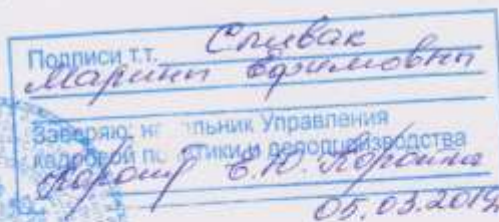 Подписи т.т. Спивак
Марины Ефимовны
Заверяю: начальник Управления
кадровой политики и делопроизводства
Е.Ю.
05.03.2019